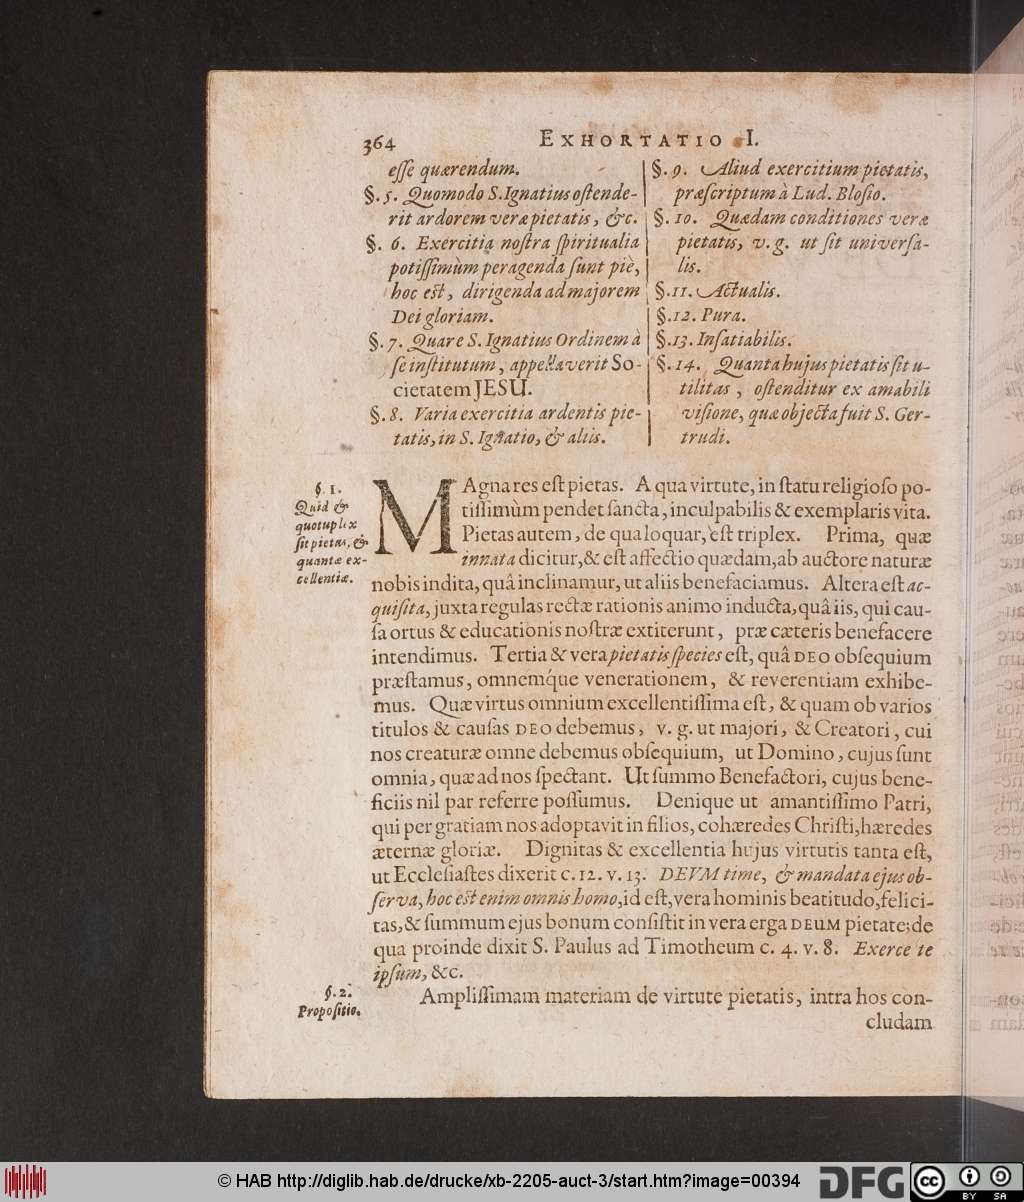 364 EXHORTATIO I.
esse quærendum.
§. 5. Quomodo S. Ignatius ostende-
rit ardorem veræ pietatis, &c.
§. 6. Exercitia nostra spiritualia
potissimùm peragenda sunt piè,
hoc est, dirigenda ad majorem
Dei gloriam.
§. 7. Quare S. Ignatius Ordinem à
se institutum, appellaverit So-
cietatem JESU.
§. 8. Varia exercitia ardentis pie-
tatis, in S. Ignatio, & aliis.
§. 9. Aliud exercitium pietatis,
præscriptum à Lud. Blosio.
§. 10. Quædam conditiones veræ
pietatis, v. g. ut sit universa-
lis.
§. 11. Actualis.
§. 12. Pura.
§. 13. Insatiabilis.
§. 14. Quanta hujus pietatis sit u-
tilitas, ostenditur ex amabili
visione, quæ objecta fuit S. Ger-
trudi.
§. 1.
Quid &
quotuplex
sit pietas, &
quantæ ex-
cellentiæ.
MAgna res est pietas. A qua virtute, in statu religioso po-
tissimùm pendet sancta, inculpabilis & exemplaris vita.
Pietas autem, de qua loquar, est triplex. Prima, quæ
innata dicitur, & est affectio quædam, ab auctore naturæ
nobis indita, quâ inclinamur, ut aliis benefaciamus. Altera est ac-
quisita, juxta regulas rectæ rationis animo inducta, quâ iis, qui cau-
sa ortus & educationis nostræ extiterunt, præ cæteris benefacere
intendimus. Tertia & vera pietatis species est, quâ DEO obsequium
præstamus, omnemque venerationem, & reverentiam exhibe-
mus. Quæ virtus omnium excellentissima est, & quam ob varios
titulos & causas DEO debemus, v. g. ut majori, & Creatori, cui
nos creaturæ omne debemus obsequium, ut Domino, cujus sunt
omnia, quæ ad nos spectant. Ut summo Benefactori, cujus bene-
ficiis nil par referre possumus. Denique ut amantissimo Patri,
qui per gratiam nos adoptavit in filios, cohæredes Christi, hæredes
æternæ gloriæ. Dignitas & excellentia hujus virtutis tanta est,
ut Ecclesiastes dixerit c. 12. v. 13. DEVM time, & mandata ejus ob-
serva, hoc est enim omnis homo, id est, vera hominis beatitudo, felici-
tas, & summum ejus bonum consistit in vera erga DEUM pietate; de
qua proinde dixit S. Paulus ad Timotheum c. 4. v. 8. Exerce te
ipsum, &c.
§. 2.
Propositio.
Amplissimam materiam de virtute pietatis, intra hos con-
cludam
© HAB http://diglib.hab.de/drucke/xb-2205-auct-3/start.htm?image=00394
DFG
cc
BY SA